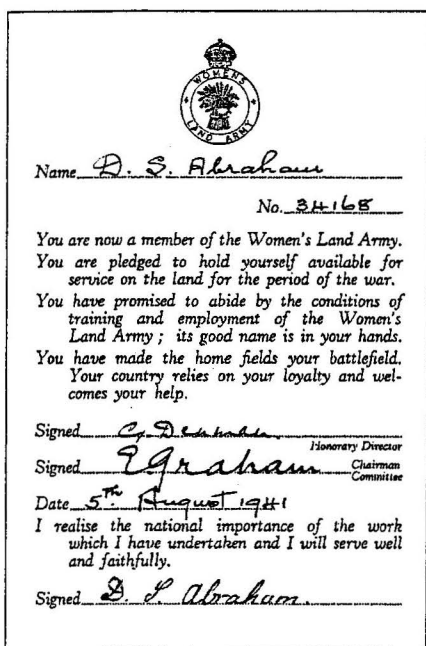 WOMENS
LAND ARMY
Name D. S. Abraham
No. 34168
You are now a member of the Women's Land Army.
You are pledged to hold yourself available for
service on the land for the period of the war.
You have promised to abide by the conditions of
training and employment of the Women's
Land Army ; its good name is in your hands.
You have made the home fields your battlefield.
Your country relies on your loyalty and wel-
comes your help.
Signed G. Denman
Honorary Director
Signed E Graham Chairman
Committee
Date 5th August 1941
I realise the national importance of the work
which I have undertaken and I will serve well
and faithfully.
Signed D. S. Abraham.